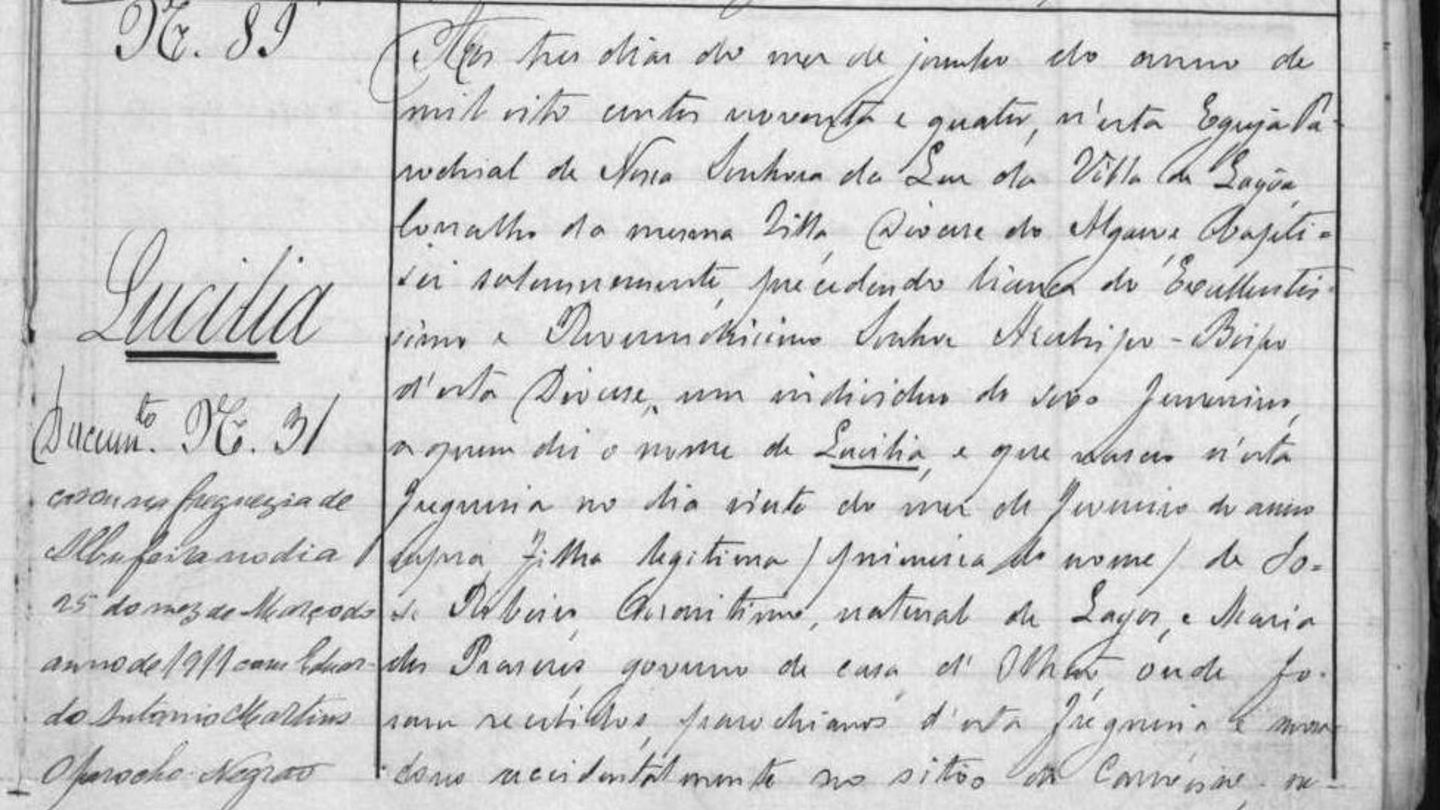 Nº. 89
Lucilia
Docum.to Nº. 31
casou na freguezia de
Albufeira no dia
25 do mez de Março do
anno de 1911 com Eduar-
do Antonio Martins
O parocho Negrão
Aos tres dias do mez de junho do anno de
mil oito centos noventa e quatro, n'esta Egreja Pa-
rochial de Nossa Senhora da Luz da Villa de Lagôa,
Concelho da mesma Villa, Diocese do Algarve bapti-
sei solemnemente, precedendo licença do Excellentis-
simo e Reverendissimo Senhor Arcebispo-Bispo
d'esta Diocese, um individuo do sexo femenino,
a quem dei o nome de Lucilia, e que nasceu n'esta
freguesia no dia vinte do mez de Fevereiro do anno
supra filha legitima (primeira do nome) de Jo-
sé Ribeiro, maritimo, natural de Lagos, e Maria
dos Praseres governo de casa d'Olhão onde fo-
ram recebidos, parochianos d'esta freguesia e mora-
dores accidentalmente no sitio de